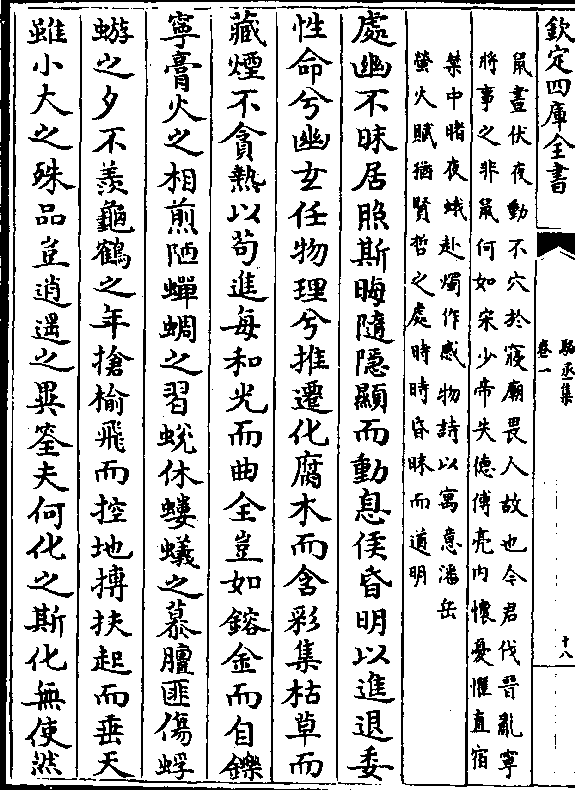 欽定四庫全書
駱丞集
卷一
十八
鼠晝伏夜動不穴於寢廟畏人故也今君伐晉亂寧
將事之非鼠何如宋少帝失德傅亮内懷憂懼直宿
禁中睹夜蛾赴燭作感物詩以寓意潘岳
螢火賦猶賢哲之處時時昏昧而道明
處幽不昧居照斯晦隨隱顯而動息俟昏明以進退委
性命兮幽玄任物理兮推遷化腐木而含彩集枯草而
藏煙不貪熱以苟進每和光而曲全豈如鎔金而自鑠
寧膏火之相煎陋蟬蜩之習蛻休螻蟻之慕羶匪傷蜉
蝣之夕不羨龜鶴之年搶榆飛而控地摶扶起而垂天
雖小大之殊品豈逍遥之異筌夫何化之斯化無使然